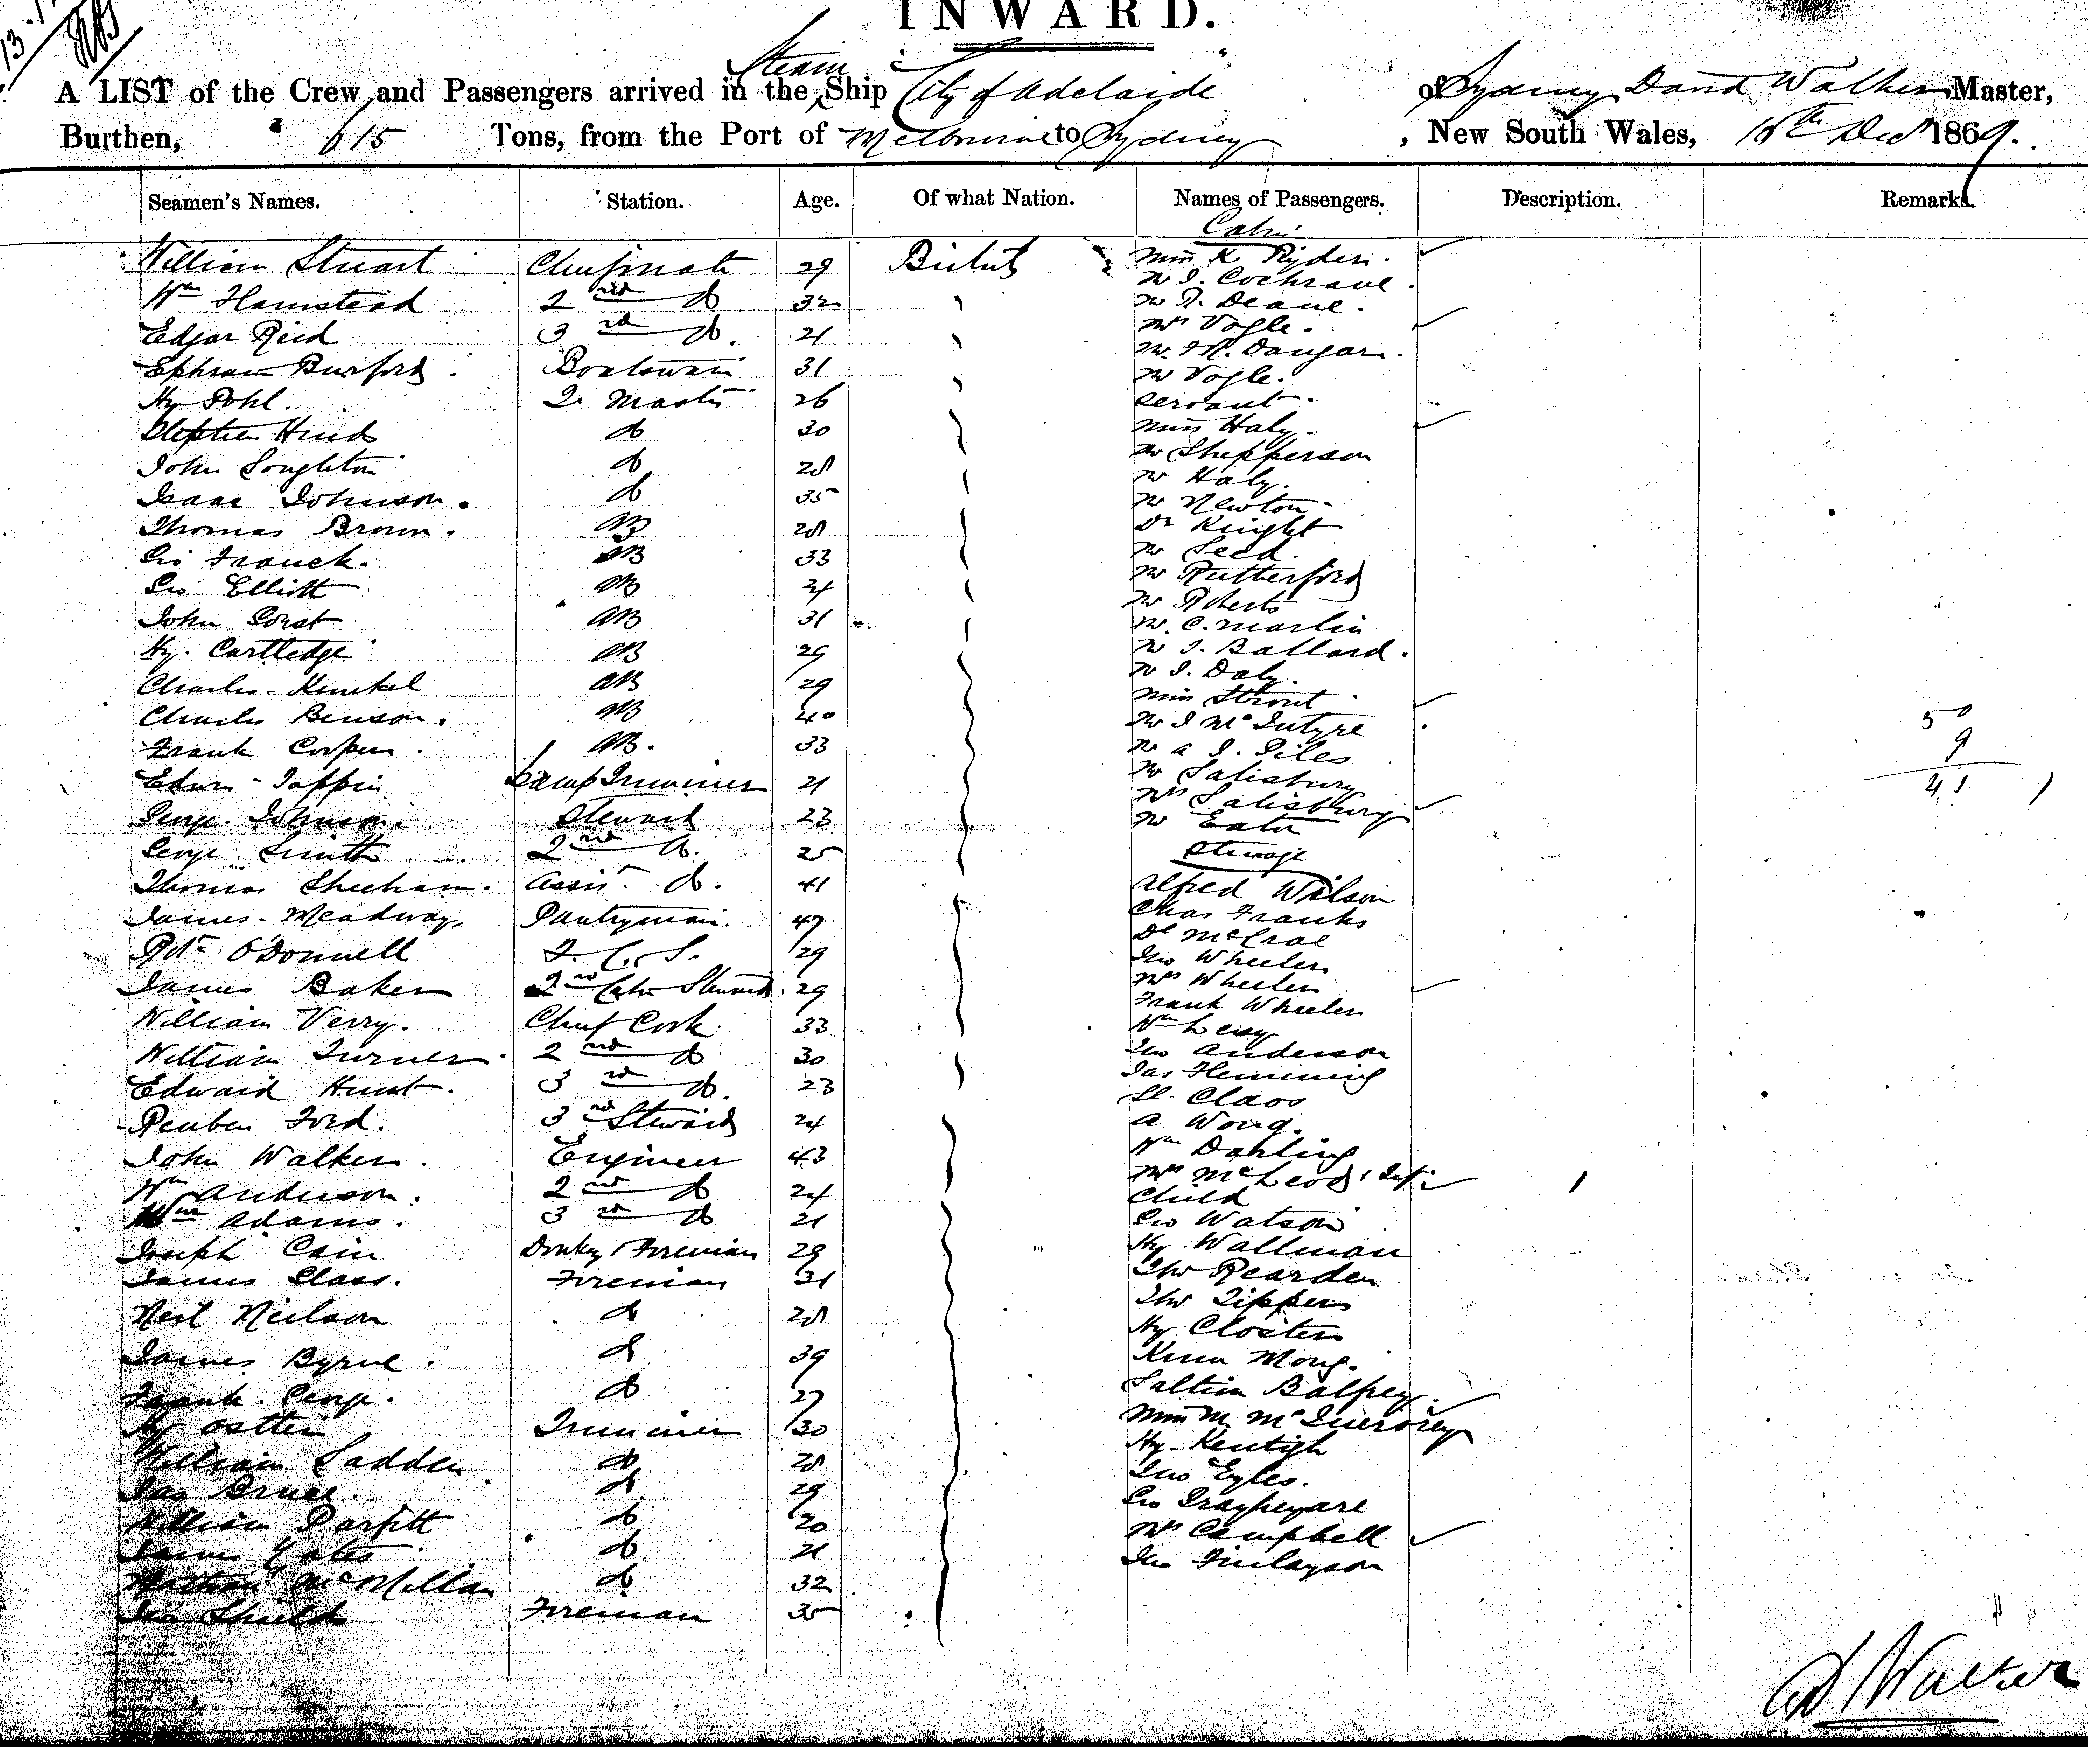 INWARD.
A LIST of the Crew and Passengers arrived in the Steam Ship "City of Adelaide" of Sydney David Walker Master,
Burthen, 615 Tons, from the Port of Melbourne to Sydney, New South Wales, Decr 1869.
Seamen's Names. Station. Age. Of what Nation. Names of Passengers. Description. Remarks.
Cabin
William Stuart Chief mate 29 British Miss K Ryder.
Mr J. Cochrane.
Wm Hamstead 2nd do 32 Mr Deane.
Mrs Vogle.
Edgar Reid 3rd do. 21 Mr Dangar.
Ephraim Burford Boatswain 31 Mr Vogle.
Hy Pohl. Qr Master 26 Servant.
Stephen Hind do 30 Miss Haly.
Mr Shepperson
John Songhton do 28 Mr Haly.
Isaac Johnson. do 35 Mr Newton
Thomas Brown. AB 28 Dr Knight
Geo Franck. AB 33 Mr Seed.
Geo Elliott AB 24 Mr Rutherford
Mr Roberts
John Gorst AB 31 Mr. C. Martin
Hy. Cartledge AB 29 Mr J. Ballard.
Mr J. Daly.
Charles Henckel AB 29 Miss Strout
Charles Benson. AB 40 Mr J McIntyre
Frank Cooper. AB. 33 Mr A J. Giles
Mr Salisbury
Edwin Toppin Lamp Trimmer 21 Mrs Salisbury
George Johnson. Steward 23 Mr Eaton
George Smith 2nd do. 25 Steerage
Thomas Sheehan. Assist. do. 41 Alfred Wilson
James Meadway. Pantryman. 47 Chas Franks
Dl McCrae
Rd O'Donnell F. C. S. 29 Jno Wheeler
James Baker 2nd Cabin Steward. 29 Mrs Wheeler
Frank Wheeler
William Verry. Chief Cook 33 Wm Leny
William Turner 2nd do 30 Jno Anderson
Edward Hunt. 3rd do. 23 Jas Flemming
Claos
Reuben Ford. 3rd Steward 24 A Wong.
John Walker. Engineer 43 Wm Darling
Mrs McLeod & Inft
Wm Anderson. 2nd do 24 Child
Wm Adams. 3rd do 21 Geo Watson
Joseph Cain Donkey Foreman 29 Hy Wallman
James Class. Fireman 31 Thos Rearden
Neil Neilson do 28 Thos Tippen
Hy Cloaten
James Byrne. do 39 Kum Mong.
Frank George. do 27 Saltiem Balfrey.
Hy Osttein Trimmer 30 Miss M. McInerney
Hy Kentigh
William Sadden do 28 Jno Eyles.
Jas Bruce. do 29 Geo
William Parfitt do 20 Mrs Campbell
James Yates do 21 Jno Finlayson
McMillan do 32
Jno Shield Fireman 35
50
9
41
D Walker